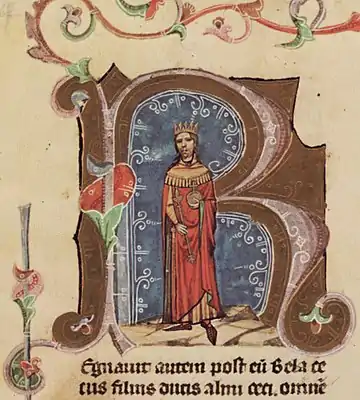 R
Egnauit autem post eū Bela ce
cus filius ducis almi ceci. omnē